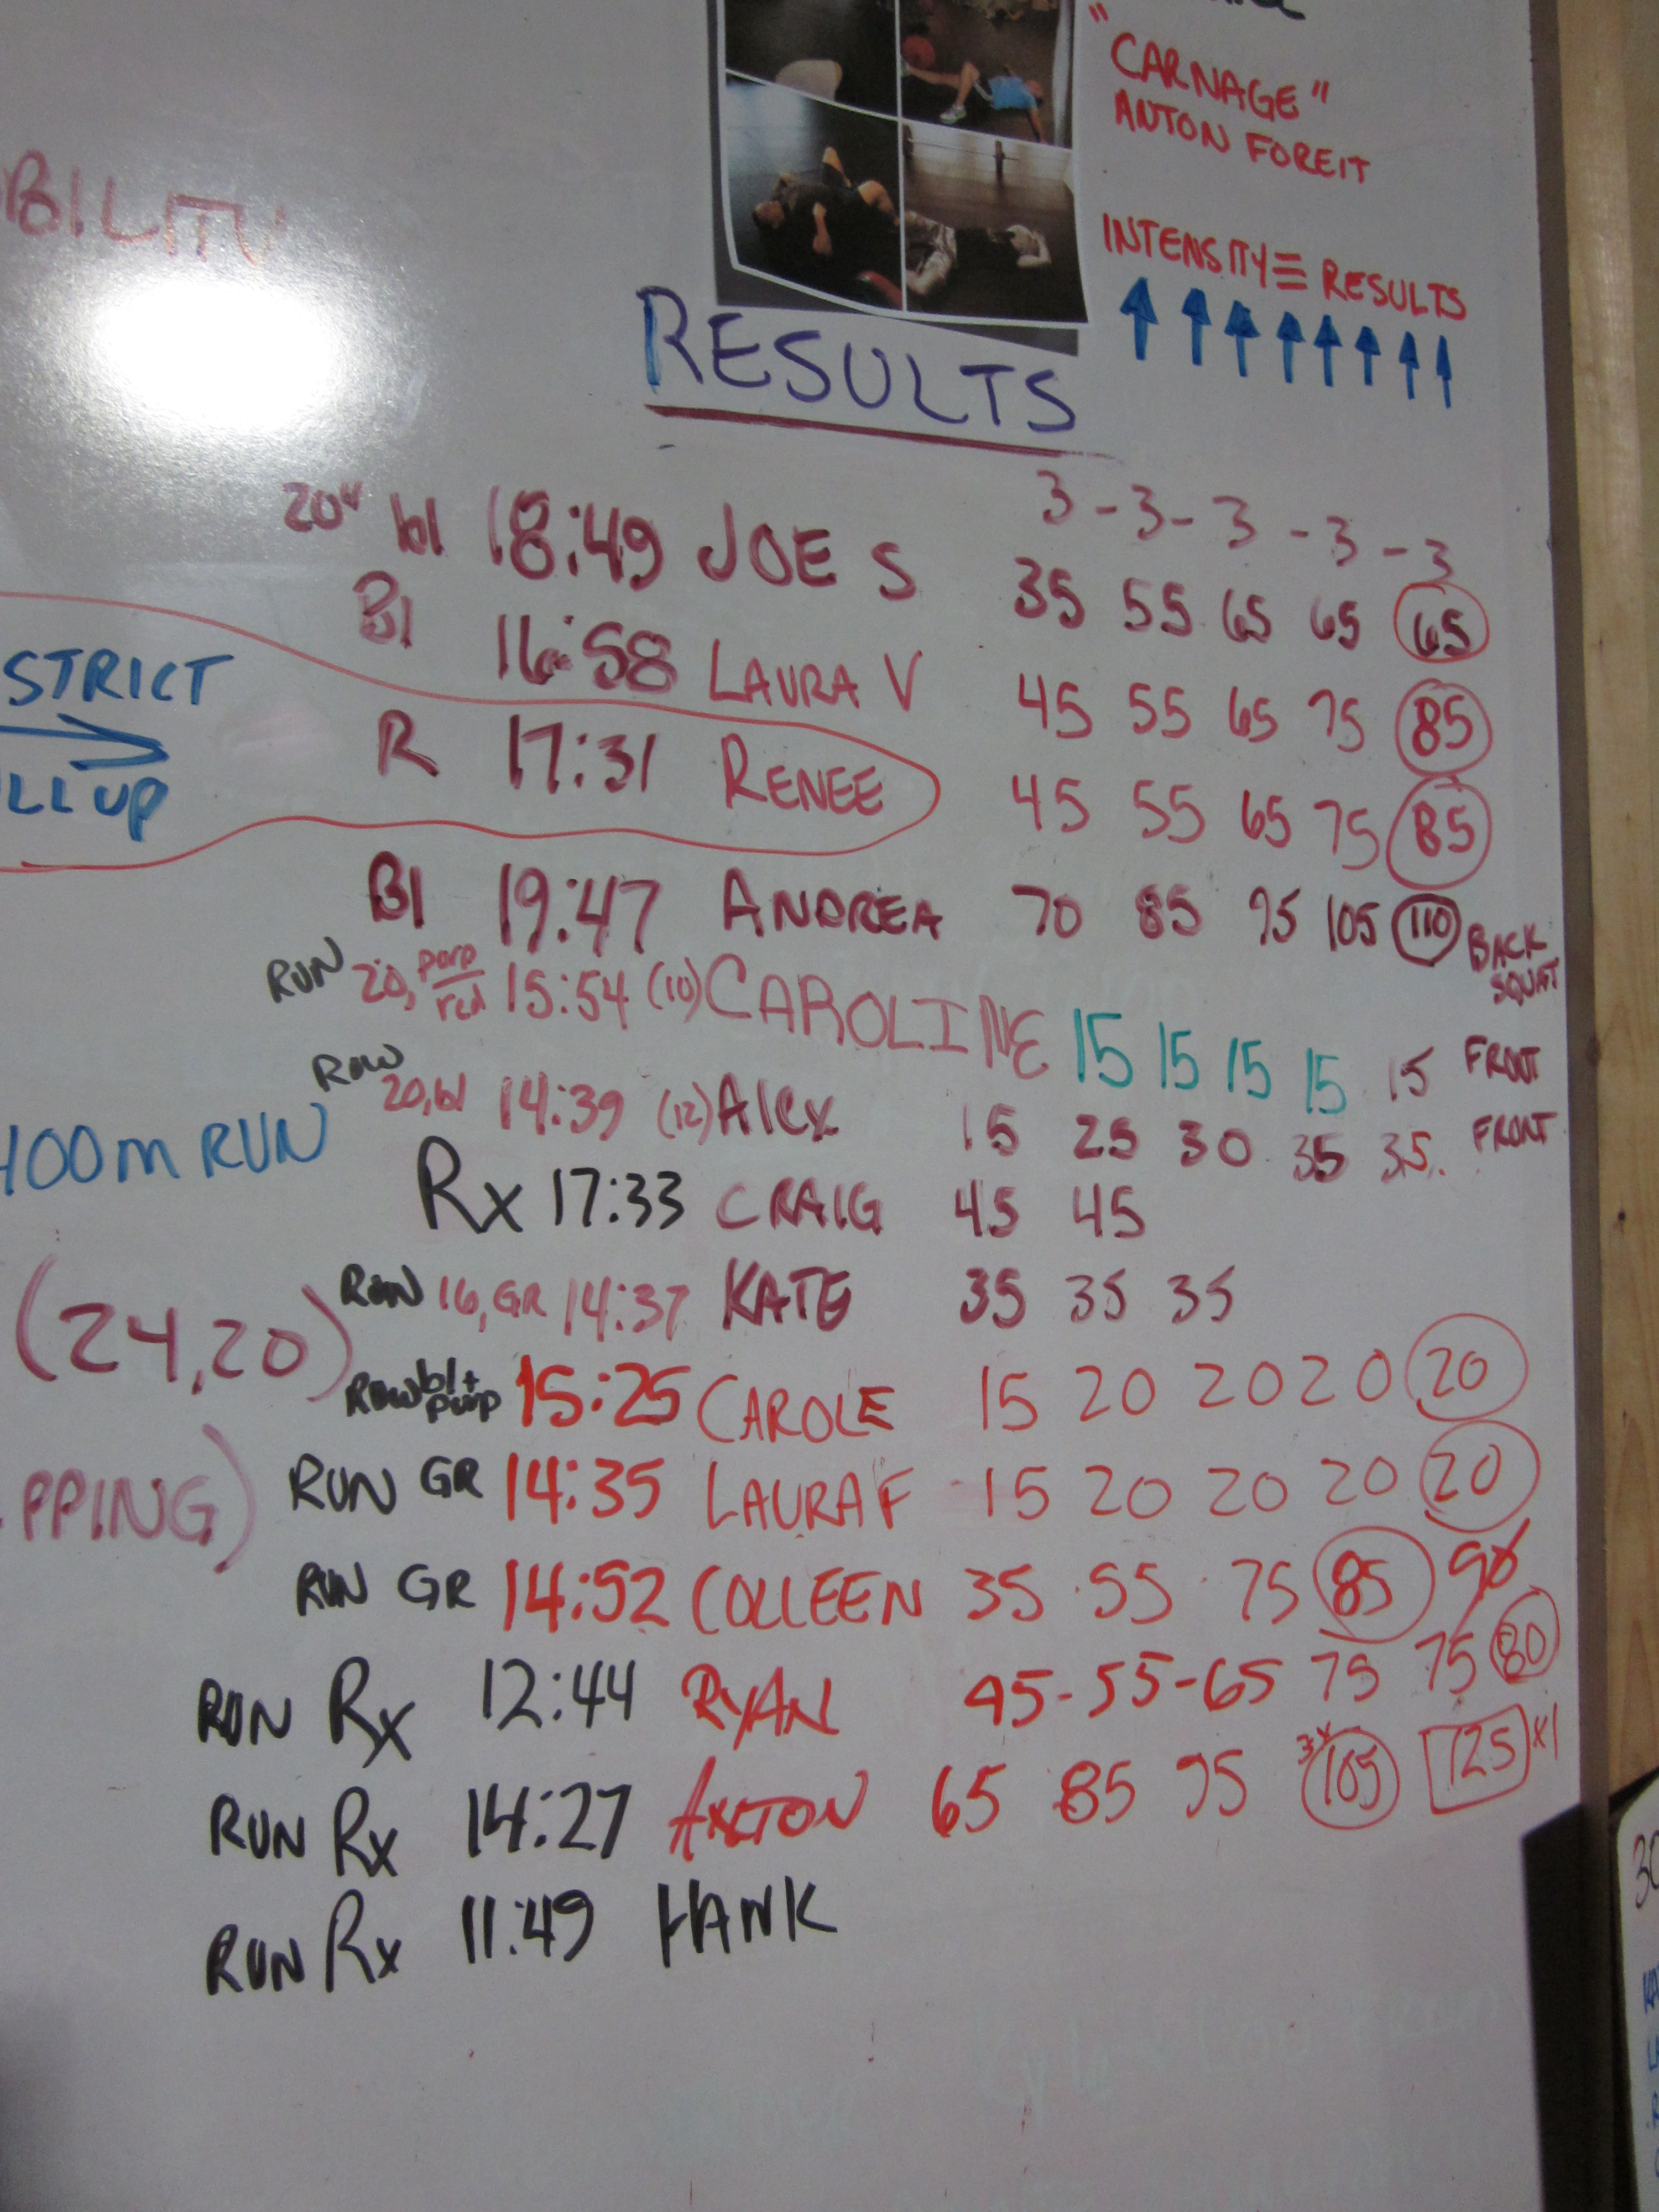 "CARNAGE"
ANTON FOREIT
INTENSITY ≡ RESULTS
BILITY
RESULTS
3 - 3 - 3 - 3 - 3
20" bl 18:49 JOE S 35 55 65 65 65
Bl 16:58 LAURA V 45 55 65 75 85
STRICT
R 17:31 RENEE 45 55 65 75 85
LL UP
Bl 19:47 ANDREA 70 85 95 105 110 BACK SQUAT
RUN 20, purp/red 15:54 (10) CAROLINE 15 15 15 15 15 FRONT
ROW 20, bl 14:39 (12) Alex 15 25 30 35 35 FRONT
400m RUN
Rx 17:33 CRAIG 45 45
(24,20)
16, GR 14:37 KATE 35 35 35
ROW bl + purp 15:25 CAROLE 15 20 20 20 20
PPING)
RUN GR 14:35 LAURA F 15 20 20 20 20
RUN GR 14:52 COLLEEN 35 55 75 85
RUN Rx 12:44 RYAN 45-55-65 75 75 80
RUN Rx 14:27 65 85 95 3x 105 125 x1
RUN Rx 11:49 HANK
30